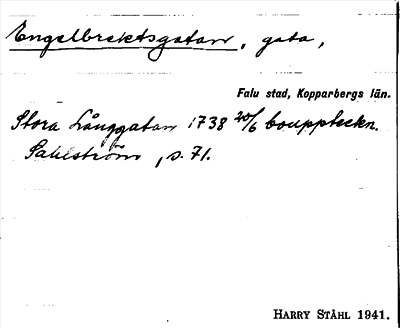 Engelbrektsgatan, gata,
Falu stad, Kopparbergs län.
Stora Långgatan 1738 20/6 bouppteckn.
Sahlström, s. 71.
HARRY STÅHL 1941.